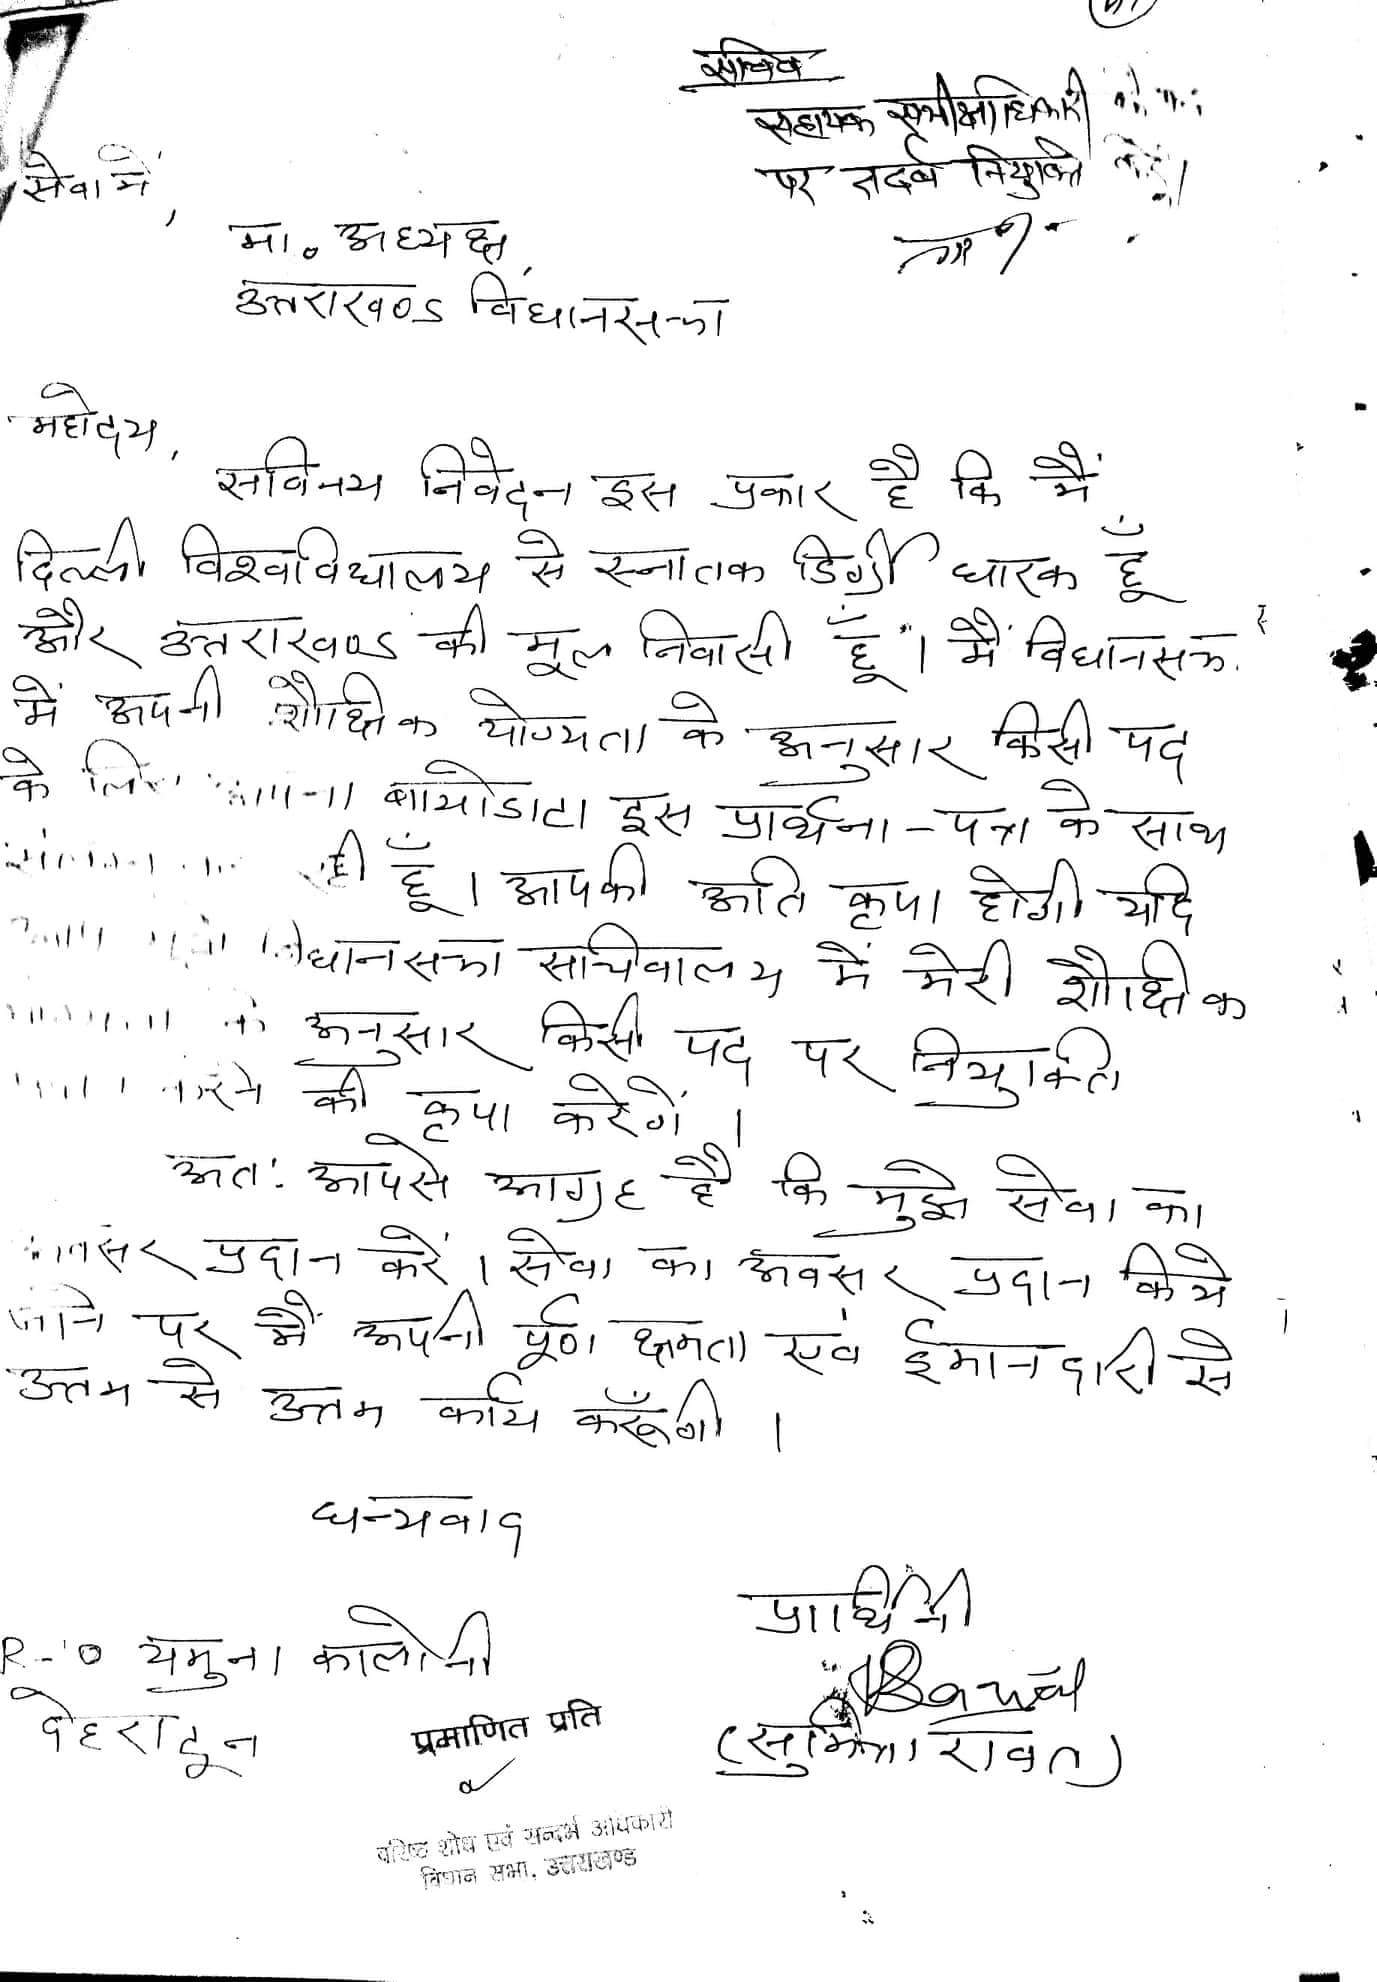 सचिव
सहायक समीक्षाधिकारी
पर तदर्थ नियुक्ति करें।
सेवा में,
मा. अध्यक्ष,
उत्तराखण्ड विधानसभा
महोदय,
सविनय निवेदन इस प्रकार है कि मैं
दिल्ली विश्वविद्यालय से स्नातक डिग्री धारक हूँ
और उत्तराखण्ड की मूल निवासी हूँ। मैं विधानसभा
में अपनी शैक्षिक योग्यता के अनुसार किसी पद
के लिए अपना बायोडाटा इस प्रार्थना-पत्र के साथ
रही हूँ। आपकी अति कृपा होगी यदि
आप मुझे विधानसभा सचिवालय में मेरी शैक्षिक
के अनुसार किसी पद पर नियुक्ति
करने की कृपा करेगें।
अतः आपसे आग्रह है कि मुझे सेवा का
अवसर प्रदान करें। सेवा का अवसर प्रदान किये
जाने पर मैं अपनी पूर्ण क्षमता एवं ईमानदारी से
उत्तम से उत्तम कार्य करूँगी।
धन्यवाद
प्रार्थिनी
R-0 यमुना कालोनी
देहरादून
(सुमित्रा रावत)
प्रमाणित प्रति
वरिष्ठ शोध एवं सन्दर्भ अधिकारी
विधान सभा, उत्तराखण्ड